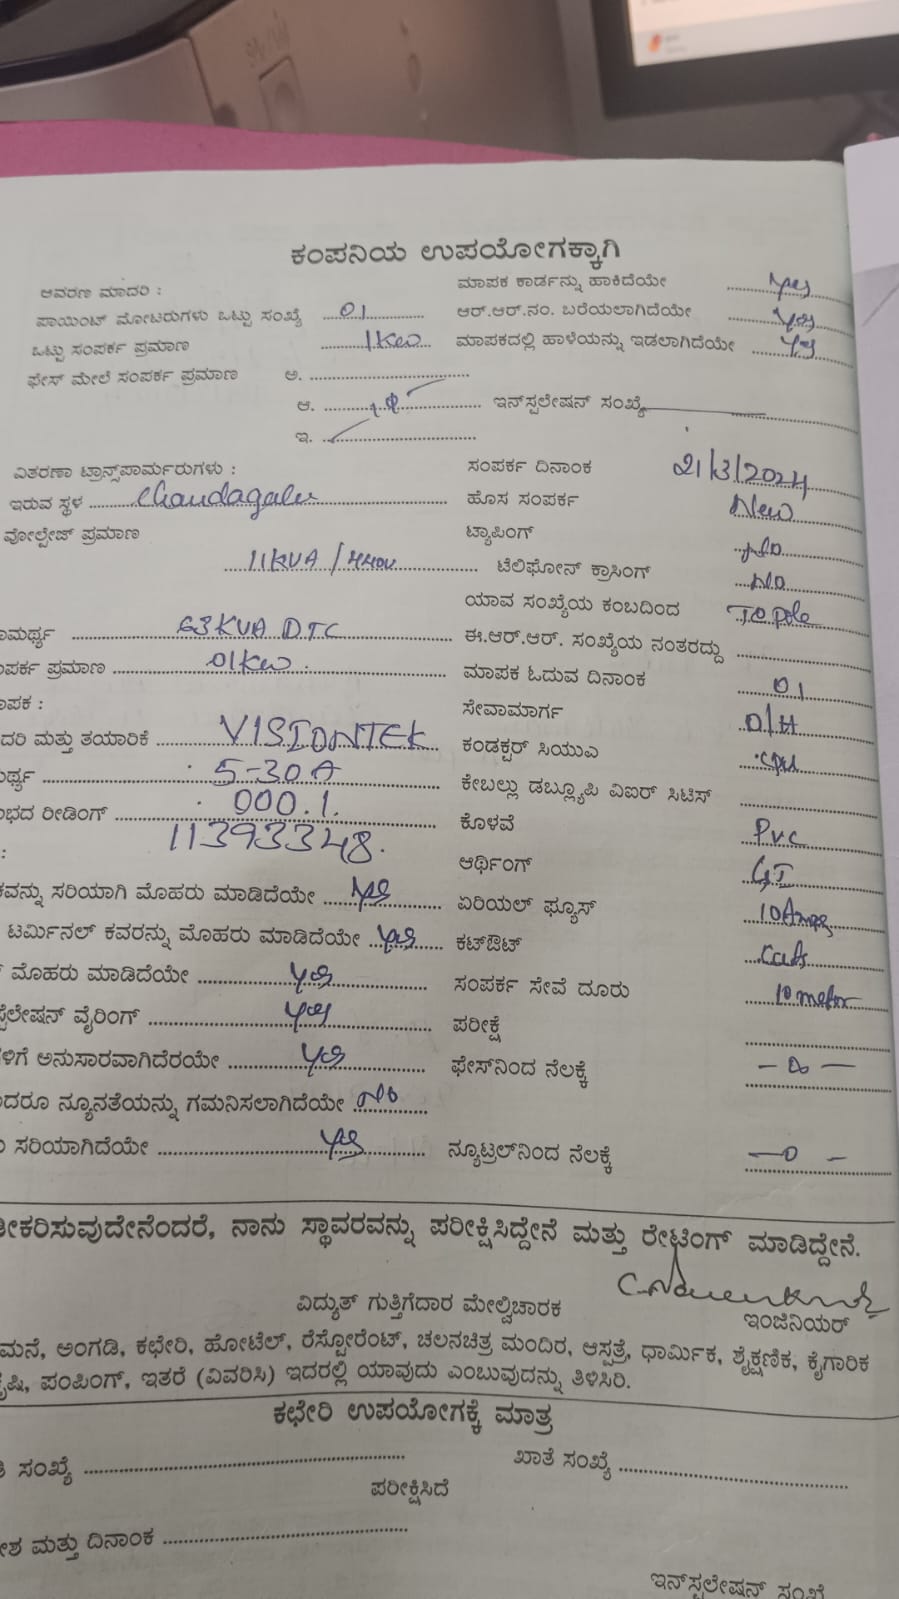 ಕಂಪನಿಯ ಉಪಯೋಗಕ್ಕಾಗಿ
ಆವರಣ ಮಾದರಿ :
ಮಾಪಕ ಕಾರ್ಡನ್ನು ಹಾಕಿದೆಯೇ yes
ಪಾಯಿಂಟ್ ಮೋಟರುಗಳು ಒಟ್ಟು ಸಂಖ್ಯೆ 01
ಆರ್.ಆರ್.ನಂ. ಬರೆಯಲಾಗಿದೆಯೇ yes
ಒಟ್ಟು ಸಂಪರ್ಕ ಪ್ರಮಾಣ 1kw
ಮಾಪಕದಲ್ಲಿ ಹಾಳೆಯನ್ನು ಇಡಲಾಗಿದೆಯೇ yes
ಫೇಸ್ ಮೇಲೆ ಸಂಪರ್ಕ ಪ್ರಮಾಣ ಅ.
ಆ. 1 ಇನ್‌ಸ್ಟಲೇಷನ್ ಸಂಖ್ಯೆ
ಇ.
ವಿತರಣಾ ಟ್ರಾನ್ಸ್‌ಪಾರ್ಮರುಗಳು :
ಸಂಪರ್ಕ ದಿನಾಂಕ 21/3/2024
ಇರುವ ಸ್ಥಳ Chandagalu
ಹೊಸ ಸಂಪರ್ಕ New
ವೋಲ್ಟೇಜ್ ಪ್ರಮಾಣ 11KVA/440v
ಟ್ಯಾಪಿಂಗ್ No
ಟೆಲಿಫೋನ್ ಕ್ರಾಸಿಂಗ್ No
ಯಾವ ಸಂಖ್ಯೆಯ ಕಂಬದಿಂದ To pole
ಾಮರ್ಥ್ಯ 63KVA DTC
ಈ.ಆರ್.ಆರ್. ಸಂಖ್ಯೆಯ ನಂತರದ್ದು
ಂಪರ್ಕ ಪ್ರಮಾಣ 01kw
ಮಾಪಕ ಓದುವ ದಿನಾಂಕ 01
ಾಪಕ :
ಸೇವಾಮಾರ್ಗ O/H
ಾದರಿ ಮತ್ತು ತಯಾರಿಕೆ VISIONTEK
ಕಂಡಕ್ಟರ್ ಸಿಯುಎ
ರ್ಥ್ಯ 5-30A
ಕೇಬಲ್ಲು ಡಬ್ಲ್ಯೂಪಿ ವಿಐರ್ ಸಿಟಿಸ್
ಂಭದ ರೀಡಿಂಗ್ 000.1.
ಕೊಳವೆ PVC
: 11393348.
ಆರ್ಥಿಂಗ್ GI
ಕವನ್ನು ಸರಿಯಾಗಿ ಮೊಹರು ಮಾಡಿದೆಯೇ yes
ಏರಿಯಲ್ ಫ್ಯೂಸ್ 10Amps
ಟರ್ಮಿನಲ್ ಕವರನ್ನು ಮೊಹರು ಮಾಡಿದೆಯೇ yes
ಕಟ್‌ಔಟ್
ಮೊಹರು ಮಾಡಿದೆಯೇ yes
ಸಂಪರ್ಕ ಸೇವೆ ದೂರು 10 meter
ಸ್ಟಲೇಷನ್ ವೈರಿಂಗ್ yes
ಪರೀಕ್ಷೆ
ಳಿಗೆ ಅನುಸಾರವಾಗಿದೆರಯೇ yes
ಫೇಸ್‌ನಿಂದ ನೆಲಕ್ಕೆ — 0 —
ಾದರೂ ನ್ಯೂನತೆಯನ್ನು ಗಮನಿಸಲಾಗಿದೆಯೇ No
ಸರಿಯಾಗಿದೆಯೇ yes
ನ್ಯೂಟ್ರಲ್‌ನಿಂದ ನೆಲಕ್ಕೆ — 0 —
ೀಕರಿಸುವುದೇನೆಂದರೆ, ನಾನು ಸ್ಥಾವರವನ್ನು ಪರೀಕ್ಷಿಸಿದ್ದೇನೆ ಮತ್ತು ರೇಟಿಂಗ್ ಮಾಡಿದ್ದೇನೆ.
ವಿದ್ಯುತ್ ಗುತ್ತಿಗೆದಾರ ಮೇಲ್ವಿಚಾರಕ
ಇಂಜಿನಿಯರ್
ಮನೆ, ಅಂಗಡಿ, ಕಛೇರಿ, ಹೋಟೆಲ್, ರೆಸ್ಟೋರೆಂಟ್, ಚಲನಚಿತ್ರ ಮಂದಿರ, ಆಸ್ಪತ್ರೆ, ಧಾರ್ಮಿಕ, ಶೈಕ್ಷಣಿಕ, ಕೈಗಾರಿಕ
ೃಷಿ, ಪಂಪಿಂಗ್, ಇತರೆ (ವಿವರಿಸಿ) ಇದರಲ್ಲಿ ಯಾವುದು ಎಂಬುವುದನ್ನು ತಿಳಿಸಿರಿ.
ಕಛೇರಿ ಉಪಯೋಗಕ್ಕೆ ಮಾತ್ರ
ಸಂಖ್ಯೆ
ಖಾತೆ ಸಂಖ್ಯೆ
ಪರೀಕ್ಷಿಸಿದೆ
ೇಶ ಮತ್ತು ದಿನಾಂಕ
ಇನ್‌ಸ್ಟಲೇಷನ್ ಸಂಖ್ಯೆ